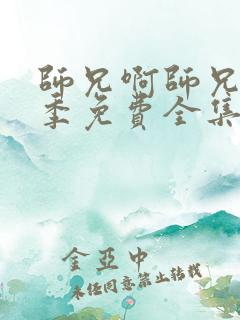 師兄啊師兄
季免費全集
金亞中
未經同意禁止轉載